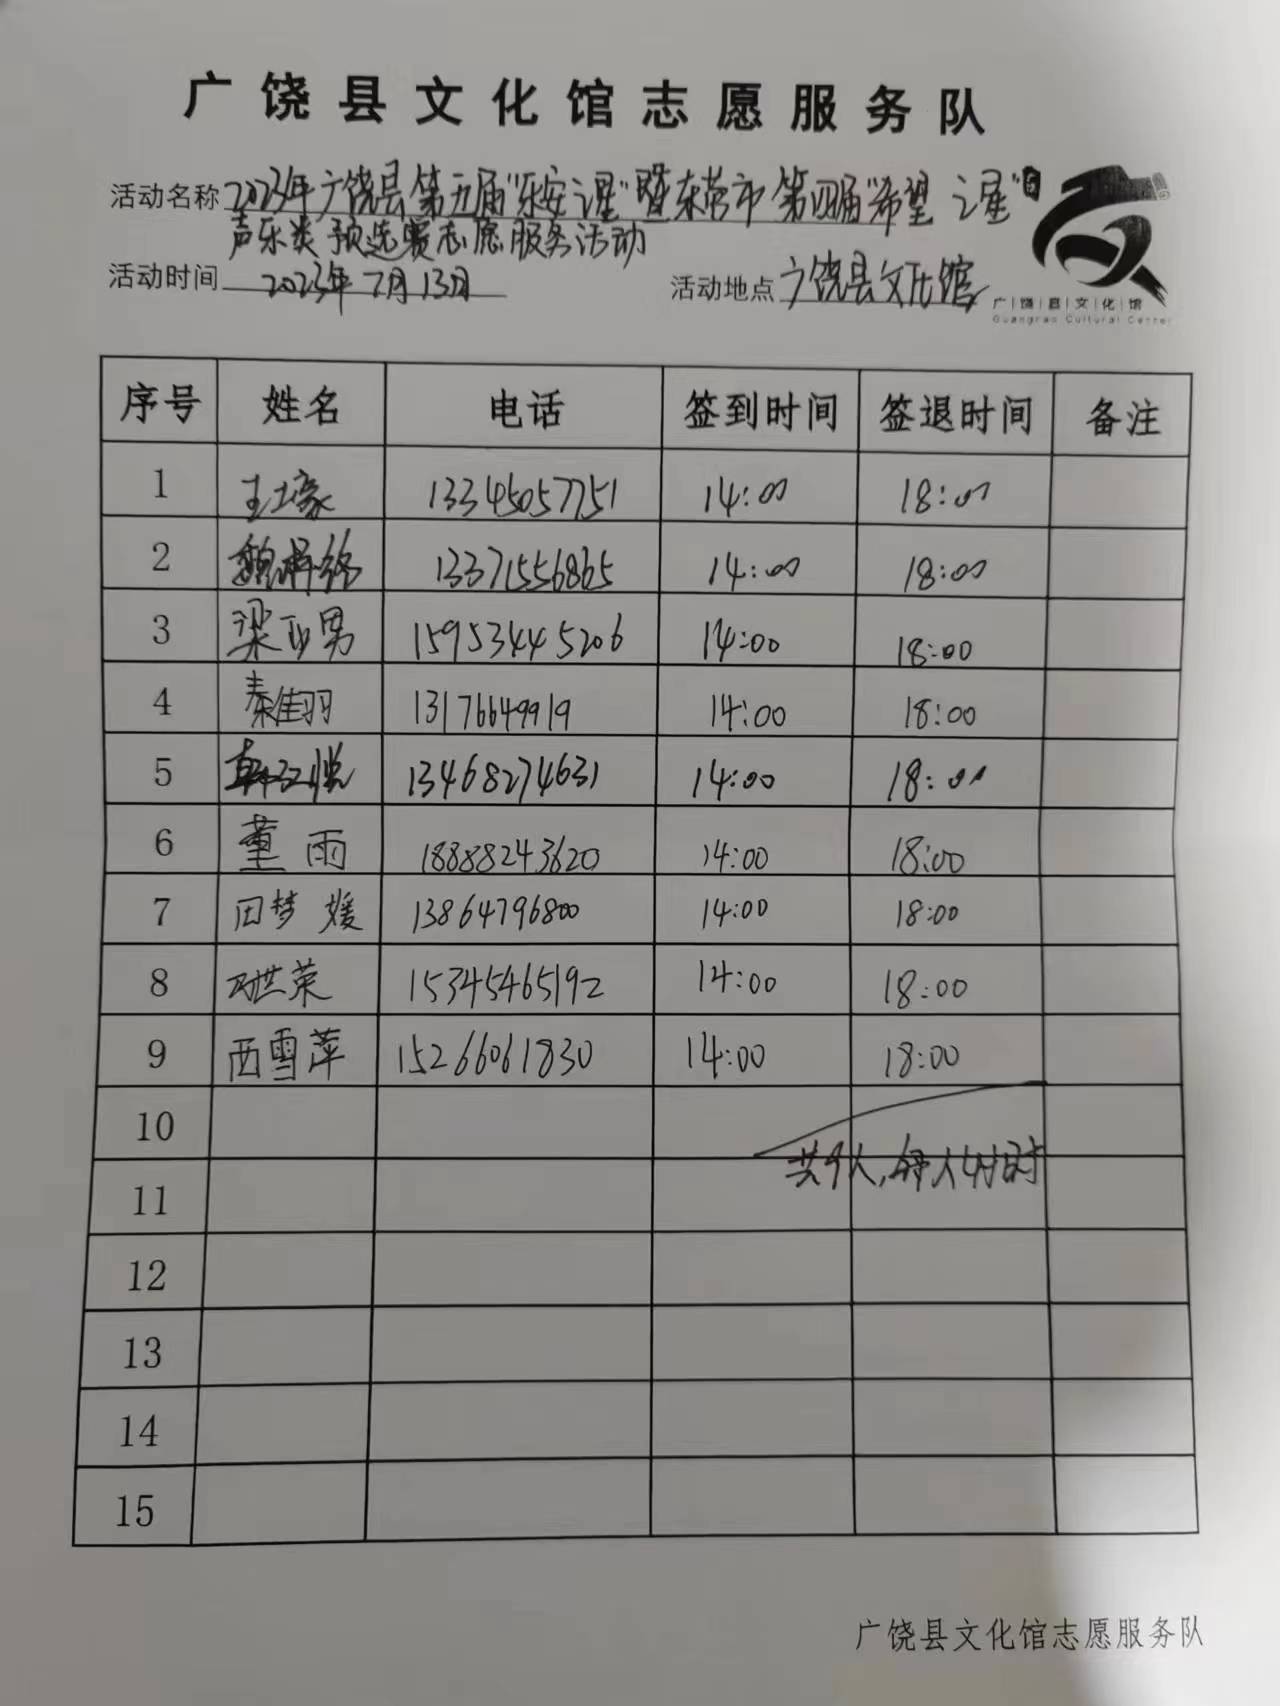 广饶县文化馆志愿服务队
活动名称 2023年广饶县第五届“乐安之星”暨东营市第四届“希望之星”
声乐类预选赛志愿服务活动
活动时间 2023年7月13日 活动地点 广饶县文化馆
广饶县文化馆
Guangrao Cultural Center
序号 姓名 电话 签到时间 签退时间 备注
1 王 13345057751 14:00 18:00
2 魏 13371556865 14:00 18:00
3 梁亚男 15953445206 14:00 18:00
4 秦佳羽 13176649919 14:00 18:00
5 韩 悦 13468274631 14:00 18:00
6 董雨 18888243620 14:00 18:00
7 田梦媛 13864796800 14:00 18:00
8 世荣 15345465192 14:00 18:00
9 西雪萍 15266061830 14:00 18:00
10
共9人，每人4小时
11
12
13
14
15
广饶县文化馆志愿服务队